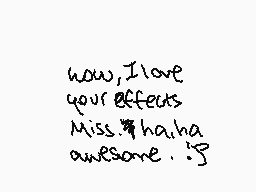 wow, I love
your effects
Miss. ha, ha
awesome. :3